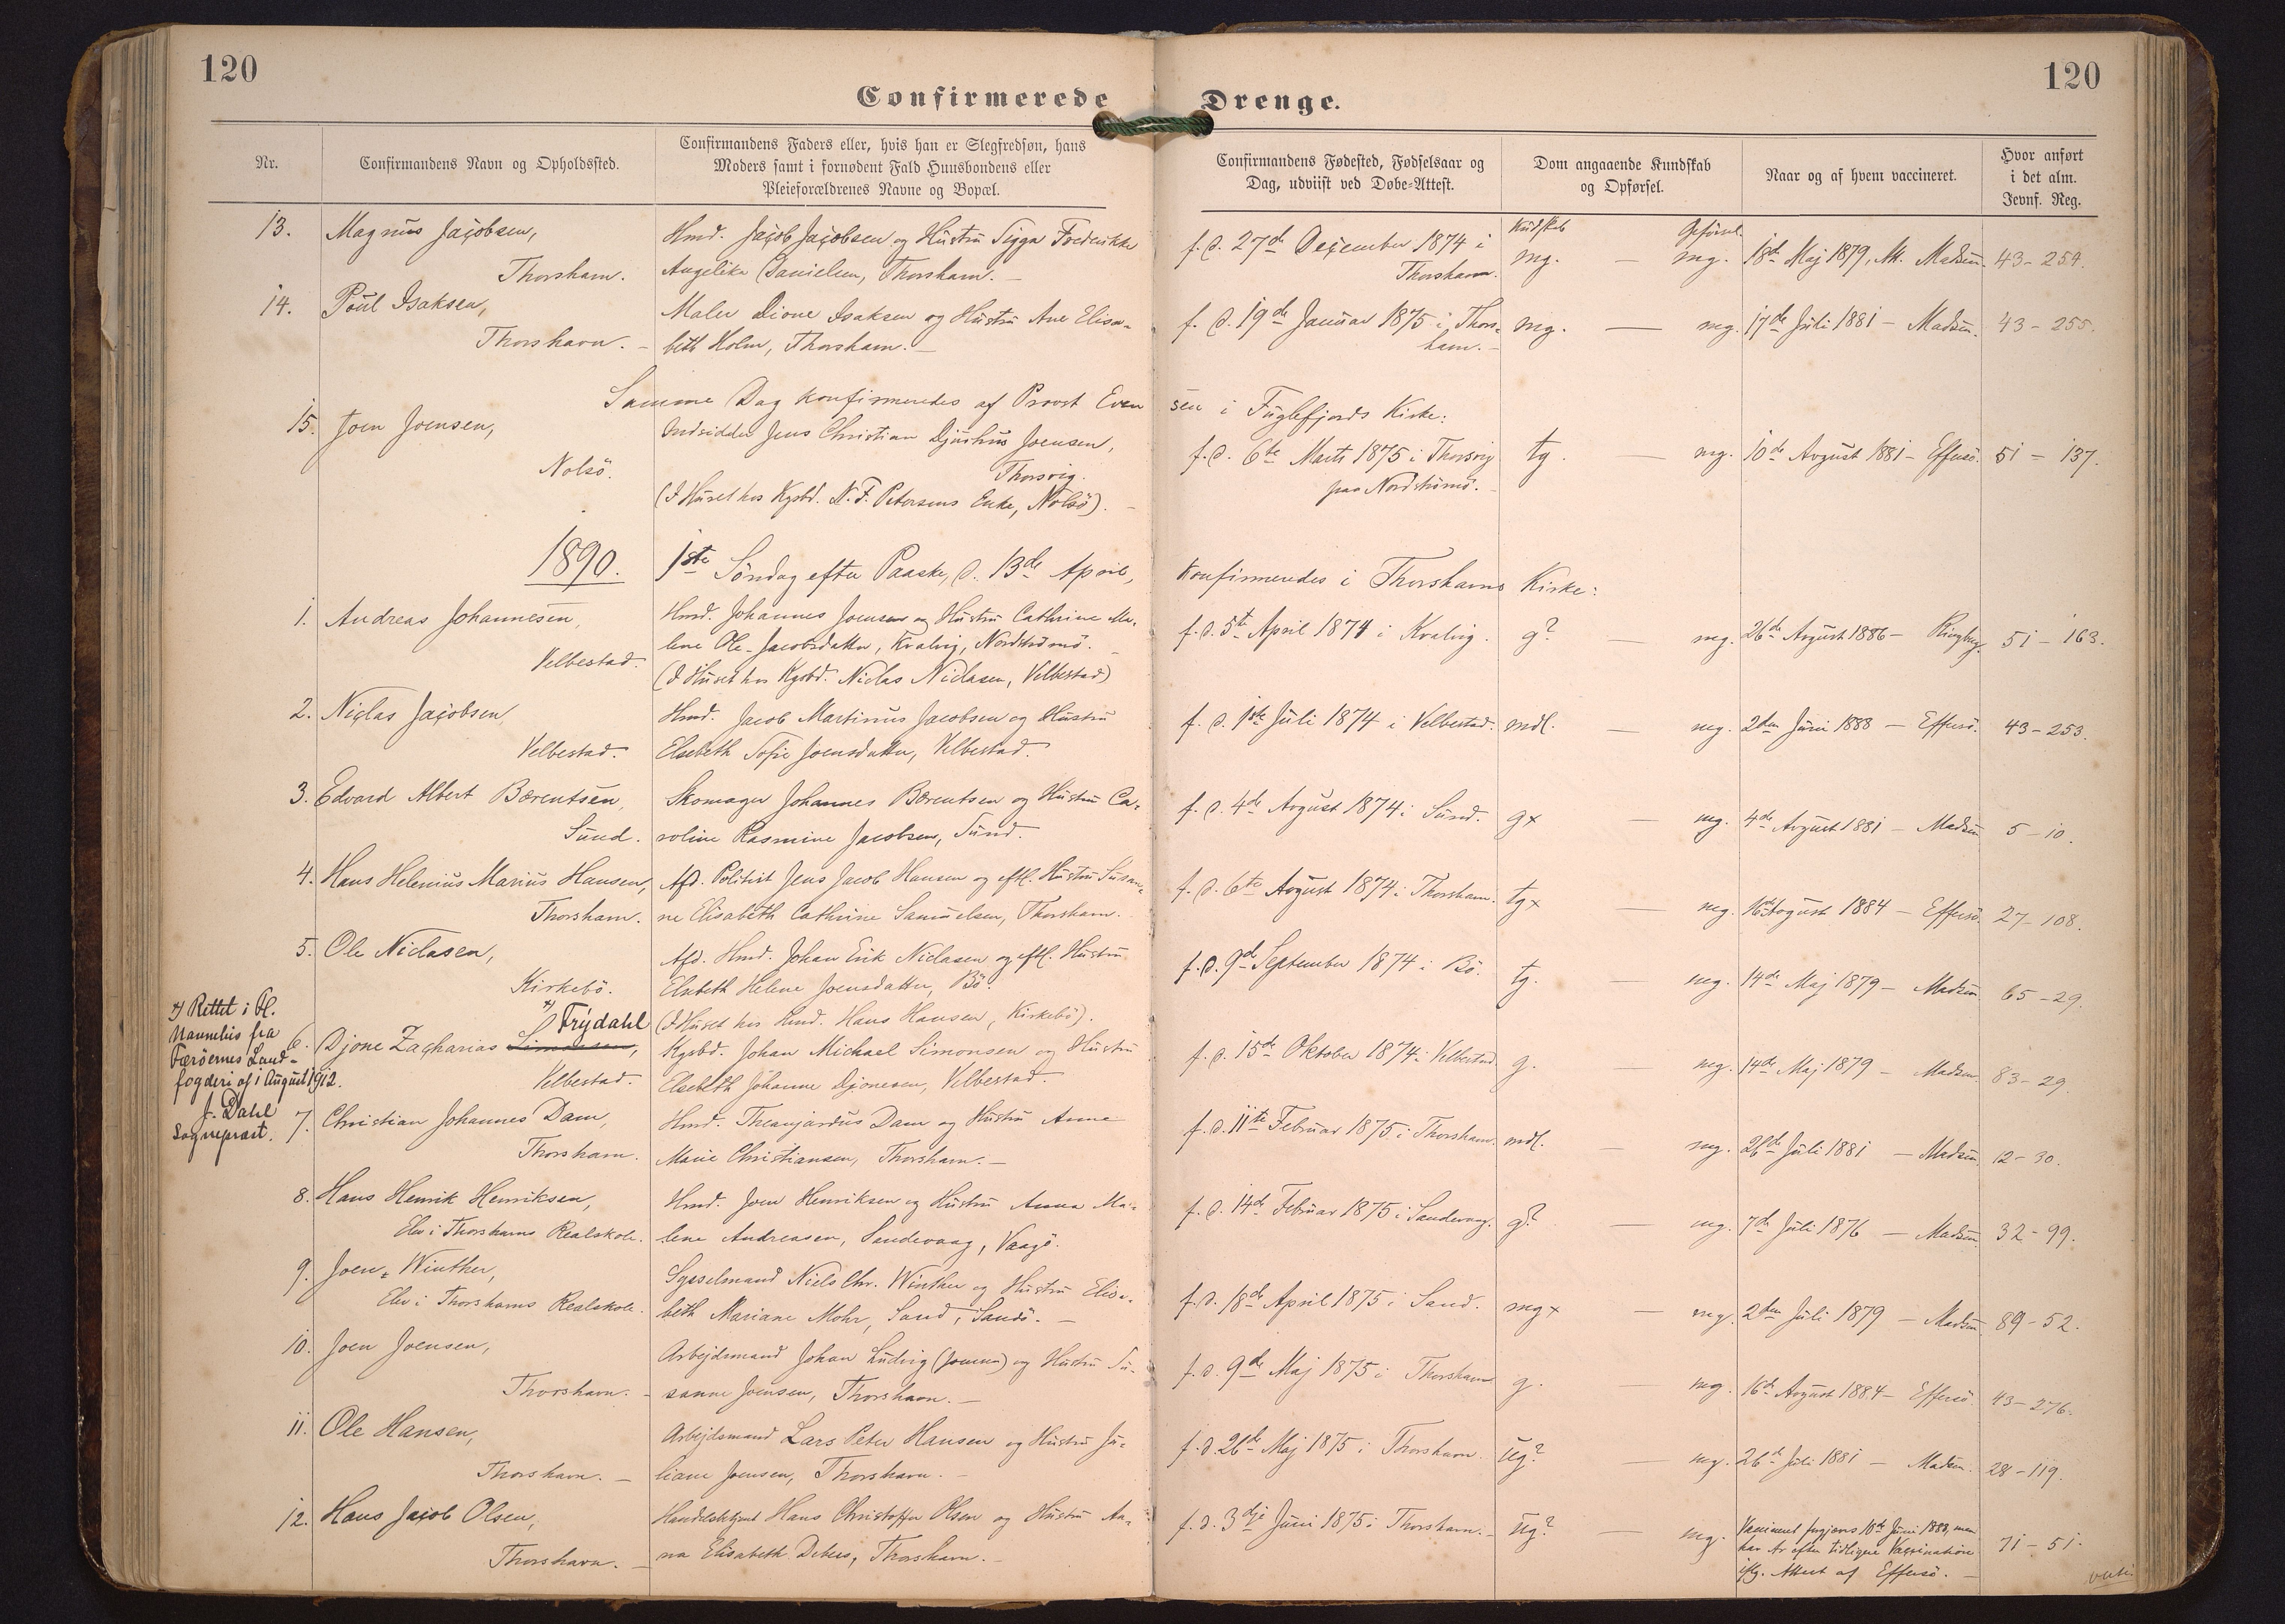 120
120
Confirmerede Drenge.
Nr.
Confirmandens Navn og Opholdssted.
Confirmandens Faders eller, hvis han er Slegfredsøn, hans
Moders samt i fornødent Fald Huusbondens eller
Pleieforældrenes Navne og Bopæl.
Confirmandens Fødested, Fødselsaar og
Dag, udviist ved Døbe-Attest.
Dom angaaende Kundskab
og Opførsel.
Naar og af hvem vaccineret.
Hvor anført
i det alm.
Jevnf. Reg.
13. Magnus Jacobsen,
Thorshavn.
Hmd. Jacob Jacobsen og Hustru Sigga Frederikke
Angelika Danielsen, Thorshavn. —
f. d. 27de December 1874 i
Thorshavn.
mg. — mg.
18de Maj 1879, Madsen.
43 - 254.
14. Poul Isaksen,
Thorshavn. —
Maler Dione Isaksen og Hustru Ane Elisa-
beth Holm, Thorshavn. —
f. d. 19de Januar 1875 i Thors-
havn. —
mg. — mg.
17de Juli 1881 — Madsen.
43 - 255.
Samme Dag konfirmeredes af Provst Evensen i Fuglefjords Kirke:
15. Joen Joensen,
Nolsö.
Indsidder Jens Christian Djurhus Joensen,
Thorsvig.
(I Huset hos Kgsbd. N. F. Petersens Enke, Nolsö). —
f. d. 6te Marts 1875 i Thorsvig
paa Nordströmö. —
tg. — mg.
10de August 1881 — Effersö.
51 - 137.
1890. 1ste Söndag efter Paaske, d. 13de April, konfirmeredes i Thorshavns Kirke:
1. Andreas Johannesen,
Velbestad.
Hmd. Johannes Joensen og Hustru Cathrine Ma-
lene Ole-Jacobsdatter, Kvalvig, Nordströmö.
(I Huset hos Kgsbd. Niclas Niclasen, Velbestad)
f. d. 5te April 1874 i Kvalvig.
g? — mg.
26de August 1886 — Ringberg.
51 - 163.
2. Niclas Jacobsen
Velbestad.
Hmd. Jacob Martinus Jacobsen og Hustru
Elsebeth Sofie Joensdatter, Velbestad.
f. d. 1ste Juli 1874 i Velbestad.
mdl. — mg.
2den Juni 1888 — Effersö.
43 - 253.
3. Edvard Albert Bærentsen,
Sund.
Skomager Johannes Bærentsen og Hustru Ca-
roline Rasmine Jacobsen, Sund.
f. d. 4de August 1874 i Sund.
g× — mg.
4de August 1881 — Madsen
5 - 10.
4. Hans Helenius Marius Hansen,
Thorshavn.
Afd. Politibt. Jens Jacob Hansen og eftl. Hustru Susan-
ne Elisabeth Cathrine Samuelsen, Thorshavn.
f. d. 6te August 1874 i Thorshavn.
tg× — mg.
16de August 1884 — Effersö.
27 - 108.
5. Ole Niclasen,
Kirkebö.
Afd. Hmd. Johan Erik Niclasen og eftl. Hustru
Elsebeth Helene Joensdatter, Bö.
(I Huset hos Hmd. Hans Hansen, Kirkebö).
f. d. 9de September 1874 i Bö.
tg. — mg.
14de Maj 1879 — Madsen
65 - 29.
×) Rettet i Hl.
Navneliste fra
Færöernes Land-
fogderi af 1 August 1912.
J. Dahl
Sognepræst.
6. Djone Zacharias Simonsen, ×) Frýdahl
Velbestad.
Kgsbd. Johan Michael Simonsen og Hustru
Elsebeth Johanne Djonesen, Velbestad.
f. d. 15de Oktober 1874 i Velbestad
g. — mg.
14de Maj 1879 — Madsen.
83 - 29.
7. Christian Johannes Dam,
Thorshavn.
Hmd. Dam og Hustru Anna
Marie Christiansen, Thorshavn. —
f. d. 11te Februar 1875 i Thorshavn.
mdl. — mg.
26de Juli 1881 — Madsen
12 - 30.
8. Hans Henrik Henriksen,
Elev i Thorshavns Realskole.
Hmd. Joen Henriksen og Hustru Anna Ma-
lene Andreasen, Sandevaag, Vaagö.
f. d. 14de Februar 1875 i Sandevaag.
g? — mg.
7de Juli 1876 — Madsen
32 - 99.
9. Joen Winther,
Elev i Thorshavns Realskole.
Sysselmand Niels Chr. Winther og Hustru Elisa-
beth Mariane Mohr, Sand, Sandö. —
f. d. 18de April 1875 i Sand.
mg× — mg.
2den Juli 1879 — Madsen
89 - 52.
10. Joen Joensen,
Thorshavn. —
Arbejdsmand Johan Ludvig (Joensen) og Hustru Su-
sanne Joensen, Thorshavn. —
f. d. 9de Maj 1875 i Thorshavn
g. — mg.
16de August 1884 — Effersö.
43 - 276.
11. Ole Hansen,
Thorshavn. —
Arbejdsmand Lars Peter Hansen og Hustru Ju-
liane Joensen, Thorshavn. —
f. d. 26de Maj 1875 i Thorshavn.
ug? — mg.
26de Juli 1881 — Madsen.
28 - 119.
12. Hans Jacob Olsen,
Thorshavn. —
Handelsbetjent Hans Christoffer Olsen og Hustru An-
na Elisabeth Debess, Thorshavn. —
f. d. 3dje Juni 1875 i Thorshavn. —
ug? — mg.
Vaccineret forgjæves 10de Juni 1888, men
har Ar efter tidligere Vaccination
iflg. Attest af Effersö. —
71 - 51.
verte